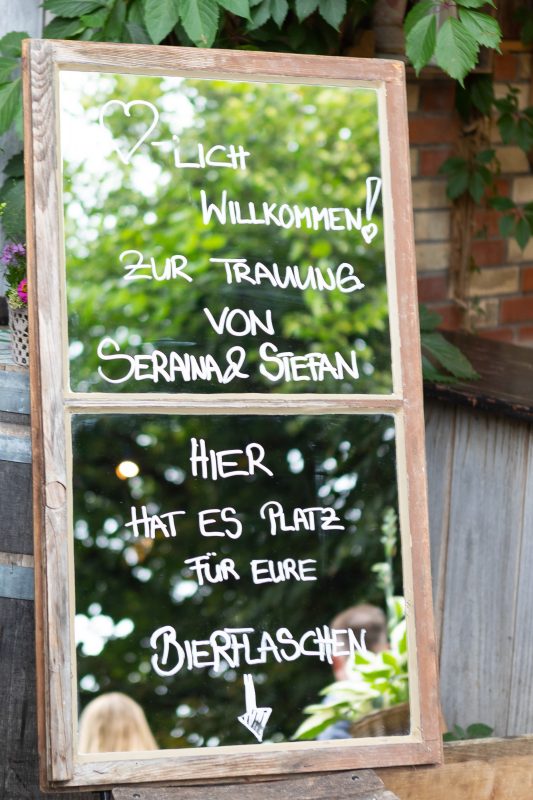 ♡-LICH
WILLKOMMEN!
ZUR TRAUUNG
VON
SERAINA & STEFAN
HIER
HAT ES PLATZ
FÜR EURE
BIERFLASCHEN